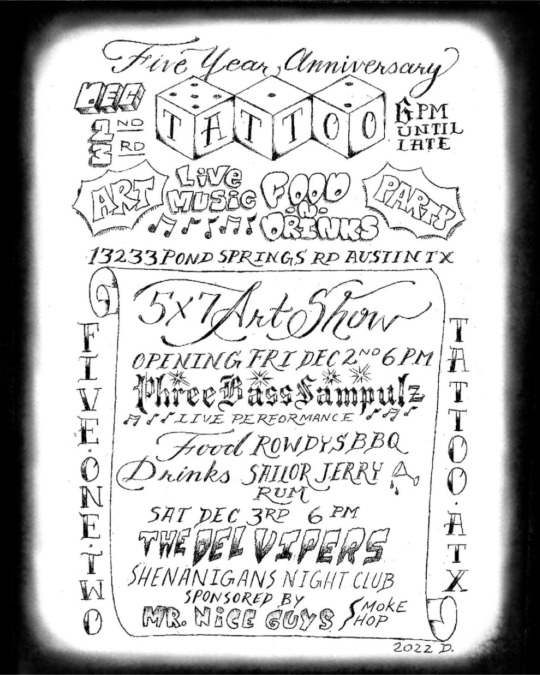 Five Year Anniversary
DEC
2ND
3RD
TATTOO
6PM
UNTIL
LATE
ART
LiVE
MUSIC
FOOD
-N-
DRINKS
PARTY
13233 POND SPRINGS RD AUSTIN TX
5X7 Art Show
OPENING FRI DEC 2ND 6 PM
PhreeBassSampulz
LIVE PERFORMANCE
Food ROWDYS BBQ
Drinks SAILOR JERRY
RUM
SAT DEC 3RD 6 PM
THE DEL VIPERS
SHENANIGANS NIGHT CLUB
SPONSORED BY
MR. NiCE GUYS SMOKE SHOP
FIVE.ONE.TWO
TATTOO.ATX
2022 D.